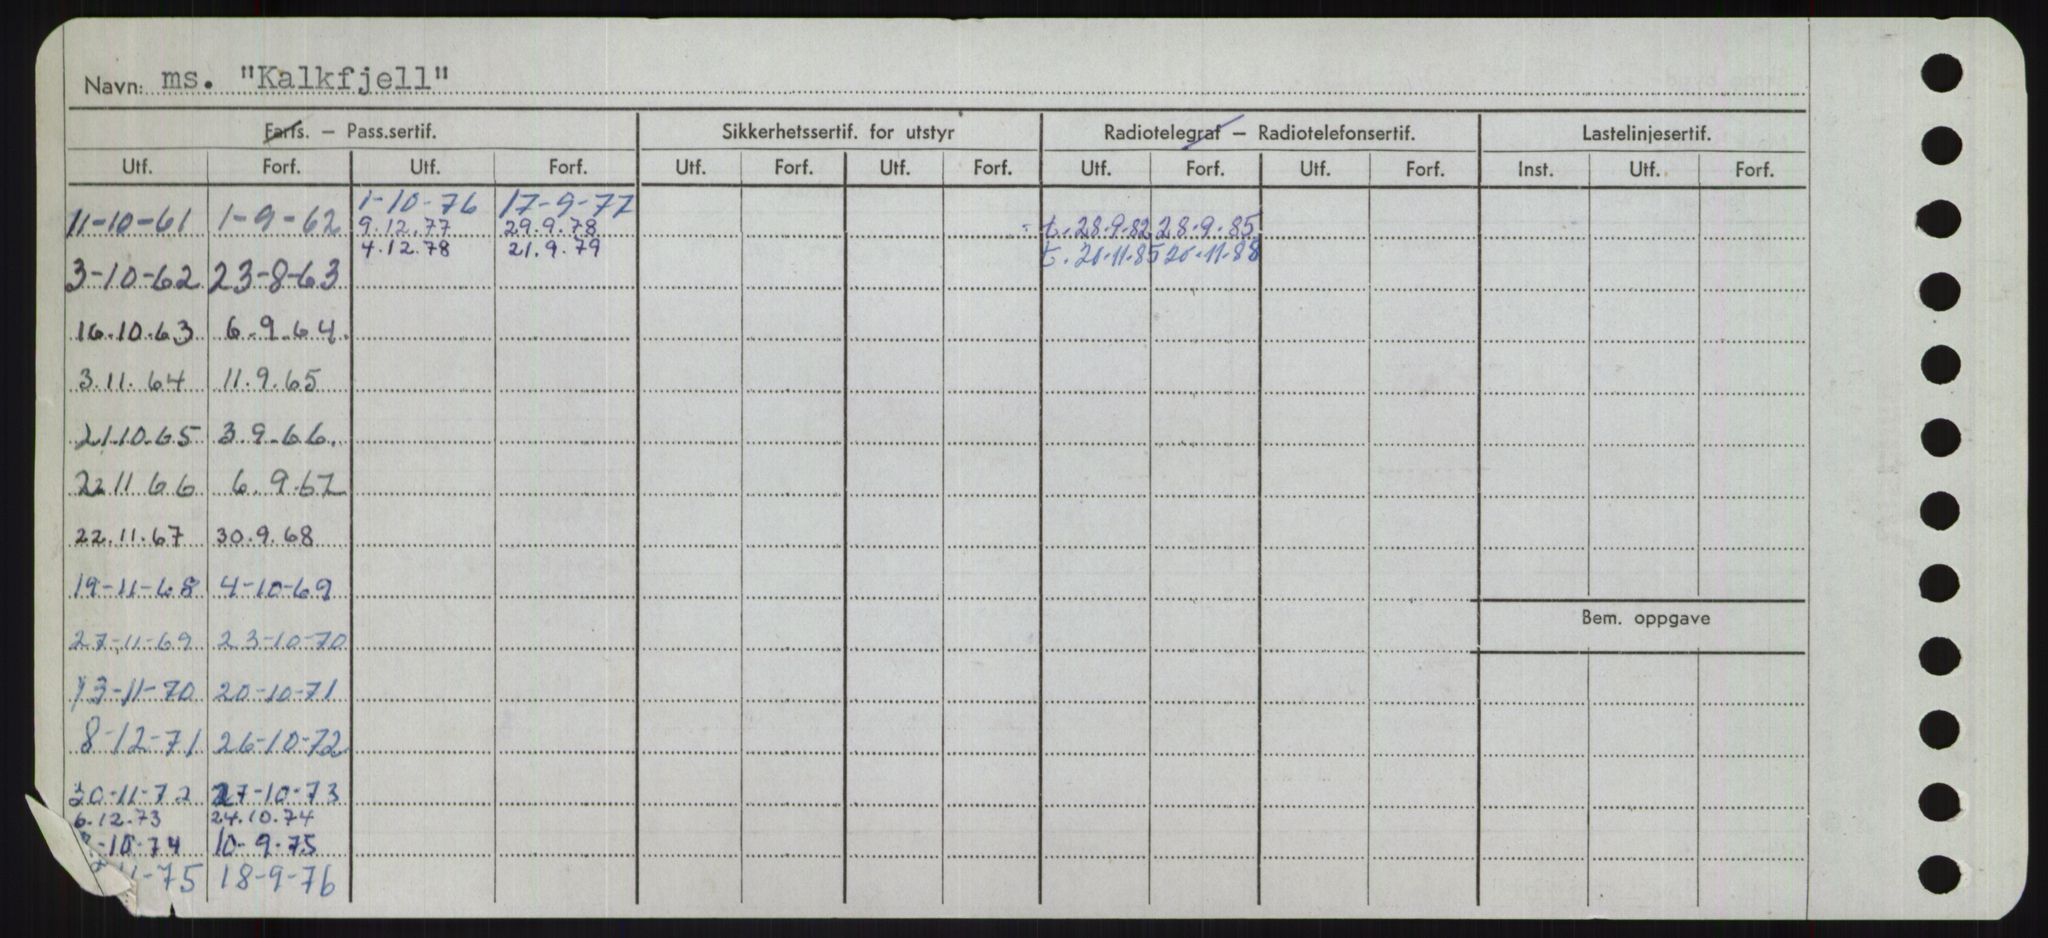 Navn: ms. "Kalkfjell"
Farts. – Pass.sertif. Sikkerhetssertif. for utstyr Radiotelegraf – Radiotelefonsertif. Lastelinjesertif.
Utf. Forf. Utf. Forf. Utf. Forf. Utf. Forf. Utf. Forf. Utf. Forf. Inst. Utf. Forf.
1-10-76 17-9-77
11-10-61 1-9-62 9.12.77 29.9.78 t. 28.9.82 28.9.85
4.12.78 21.9.79 t. 20.11.85 20.11.88
3-10-62 23-8-63
16.10.63 6.9.64.
3.11.64 11.9.65
21.10.65 3.9.66.
22 11 66 6.9.67
22.11.67 30.9.68
19-11-68 4-10-69
Bem. oppgave
27-11-69 23-10-70
13-11-70 20-10-71
8-12-71 26-10-72
30-11-72 27-10-73
6.12.73 24.10.74
-10-74 10-9-75
-75 18-9-76